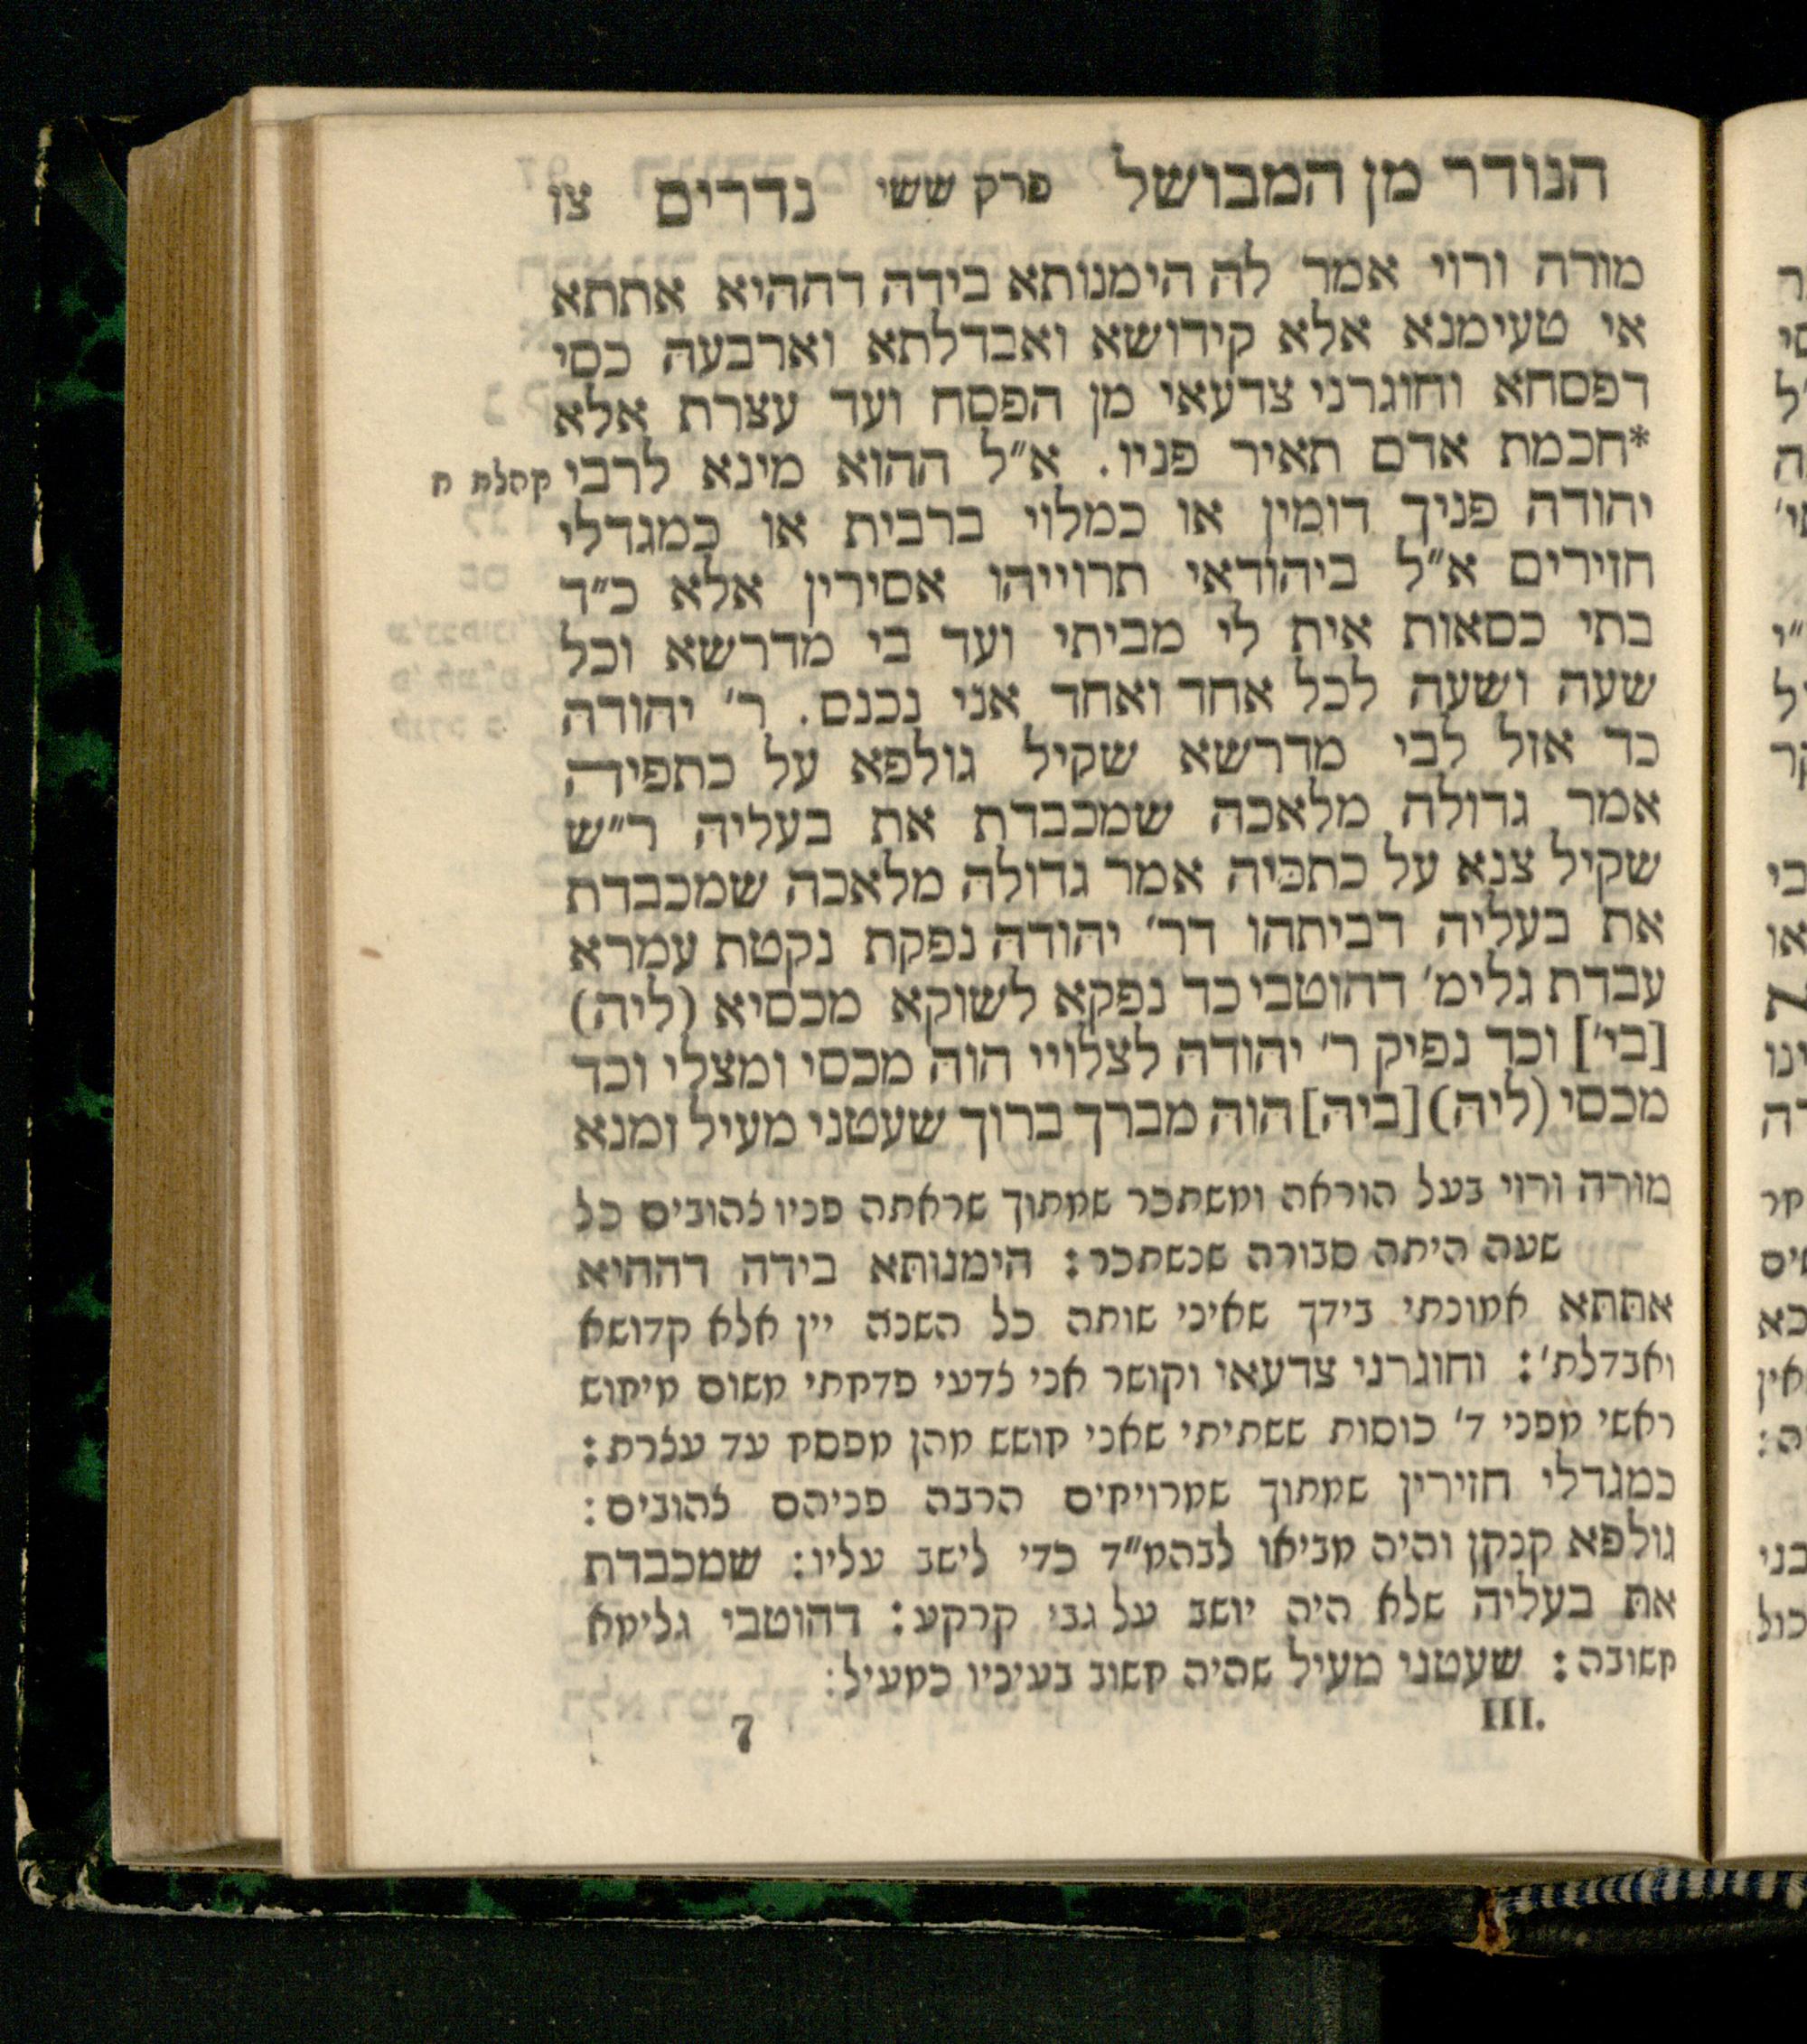 הנודר מן המבושל פרק ששי נדרים צו
מורה ורוי אמר לה הימנותא בידה דההיא אתתא
אי טעימנא אלא קידושא ואבדלתא וארבעה כסי
דפסחא וחוגרני צדעאי מן הפסח ועד עצרת אלא
*חכמת אדם תאיר פניו. א״ל ההוא מינא לרבי קהלת ח
יהודה פניך דומין או כמלוי ברבית או כמגדלי
חזירים א״ל ביהודאי תרוייהו אסירין אלא כ״ד
בתי כסאות אית לי מביתי ועד בי מדרשא וכל
שעה ושעה לכל אחד ואחד אני נכנס. ר׳ יהודה
כד אזל לבי מדרשא שקיל גולפא על כתפיה
אמר גדולה מלאכה שמכבדת את בעליה ר״ש
שקיל צנא על כתפיה אמר גדולה מלאכה שמכבדת
את בעליה דביתהו דר׳ יהודה נפקת נקטת עמרא
עבדת גלימ׳ דהוטבי כד נפקא לשוקא מכסיא (ליה)
[בי׳] וכד נפיק ר׳ יהודה לצלויי הוה מכסי ומצלי וכד
מכסי (ליה) [ביה] הוה מברך ברוך שעטני מעיל זמנא
מורה ורוי בעל הוראה ומשתכר שמתוך שראתה פניו צהובים כל
שעה היתה סבורה שנשתכר: הימנותא בידה דההיא
אתתא אמונתי בידך שאיני שותה כל השנה יין אלא קדושא
ואבדלת׳: וחוגרני צדעאי וקושר אני צדעי פדחתי משום מיחוש
ראשי מפני ד׳ כוסות ששתיתי שאני חושש מהן מפסח עד עצרת:
כמגדלי חזירין שמתוך שמרויחים הרבה פניהם צהובים:
גולפא קנקן והיה מביאו לבהמ״ד כדי לישב עליו: שמכבדת
את בעליה שלא היה יושב על גבי קרקע: דהוטבי גלימא
חשובה: שעטני מעיל שהיה חשוב בעיניו כמעיל:
III. 7